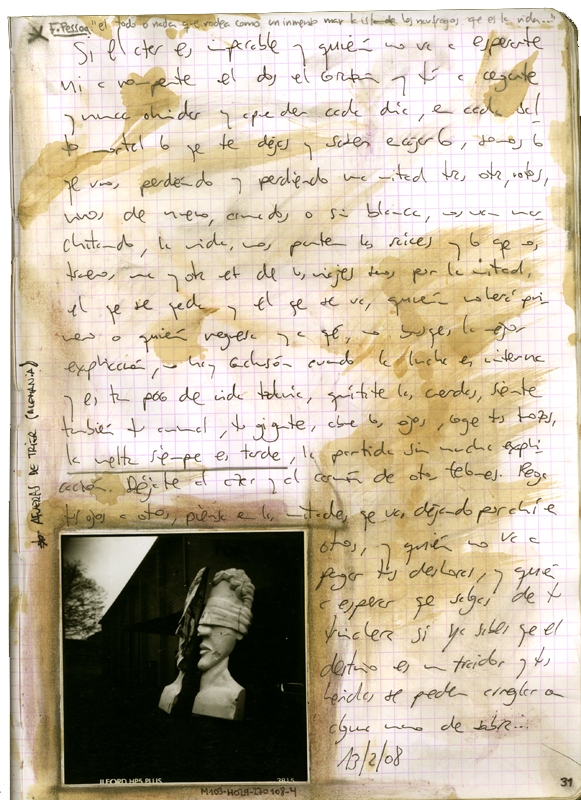 F. Pessoa "el todo o nada que rodea como un inmenso mar la isla de los naufragos que es la vida..."
Si el azar es imparable y quién no va a esperarte
ni a romperte el dos el corazón y tú a cegarte
y nunca olvidar y aprender cada día, en cada sal
to mortal lo que te dejas y sabes encajarlo, somos lo
que vamos perdiendo y perdiendo una mitad tras otra, rotos,
unos de nuevo, armados o sin blanca, nos van mar
chitando, la vida, nos parten las raíces y lo que nos
traen, una y otra vez de los viajes somos por la mitad,
el que se queda y el que se va, quién volverá pri
mero o quién regresa y a qué, no busques la mejor
explicación, no hay conclusión cuando la lucha es interna
y es tan poco de vida todavía, quítate las cuerdas, siente
también tu animal, tu gigante, abre los ojos, coge tus trozos,
la vuelta siempre es tarde, la partida sin mucha expli
cación. Déjate al azar y al corazón de otros temores. Pega
tus ojos a otros, piensa en las mitades que vas dejando por ahí a
otros, y quién no va a
pagar tus deshoras, y quién
a esperar que salgas de tu
trinchera si ya sabes que el
destino es un traidor y tus
heridas se pueden arreglar con
alguna mano de sobra...
13/2/08
AFUERAS DE TRIER (ALEMANIA)
ILFORD HP5 PLUS 3815
M103-HOLGA-120108-4
31